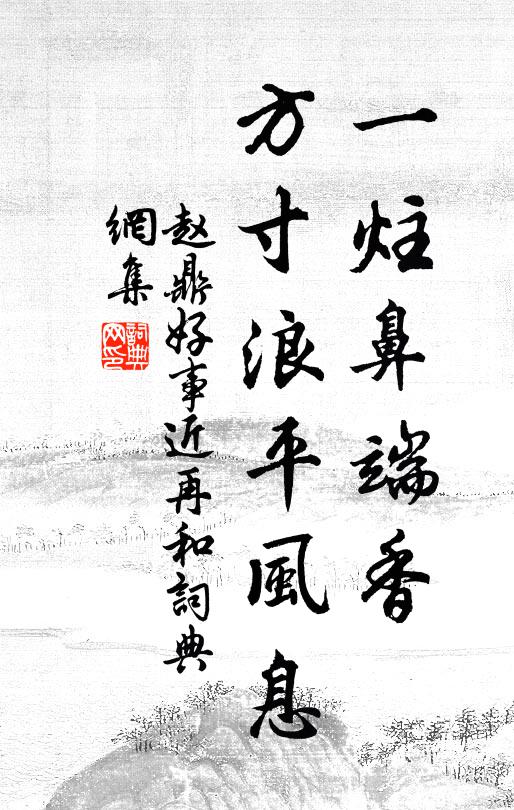 一炷鼻端香
方寸浪平風息
赵鼎好事近再和詞典
網集
詞典
网印